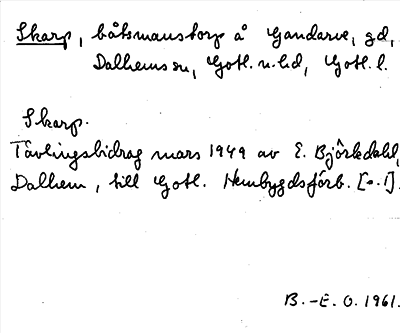 Skarp, båtsmanstorp å Gandarve, gd,
Dalhems sn, Gotl. n. hd, Gotl. l.
Skarp.
Tävlingsbidrag mars 1949 av E. Björkdahl,
Dalhem, till Gotl. Hembygdsförb. [o. i].
B.-E. O. 1961.